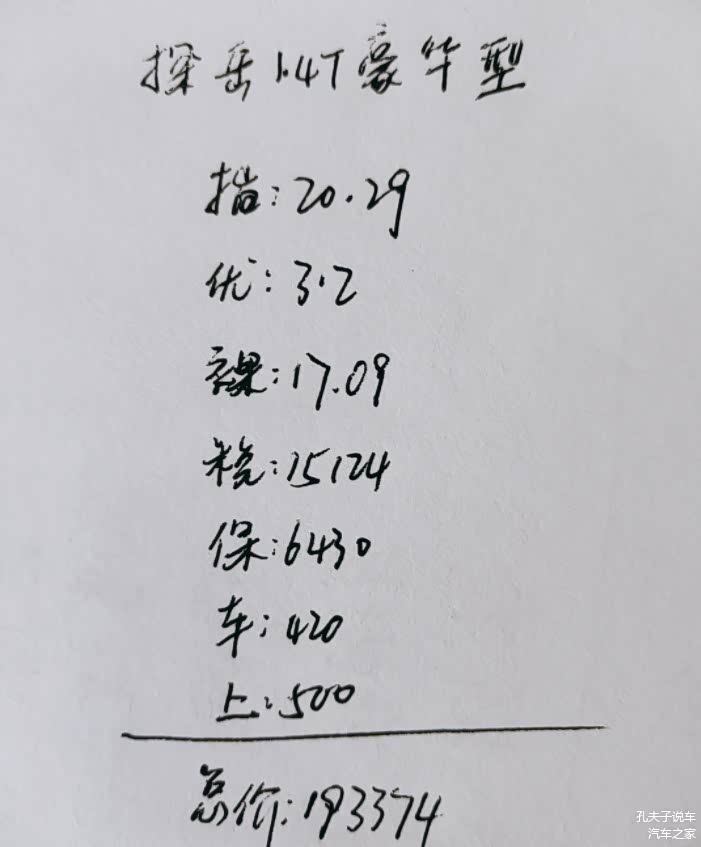 探岳1.4T豪华型
指:20.29
优:3.2
裸:17.09
税:15124
保:6430
车:420
上:500
总价:193374
孔夫子说车
汽车之家